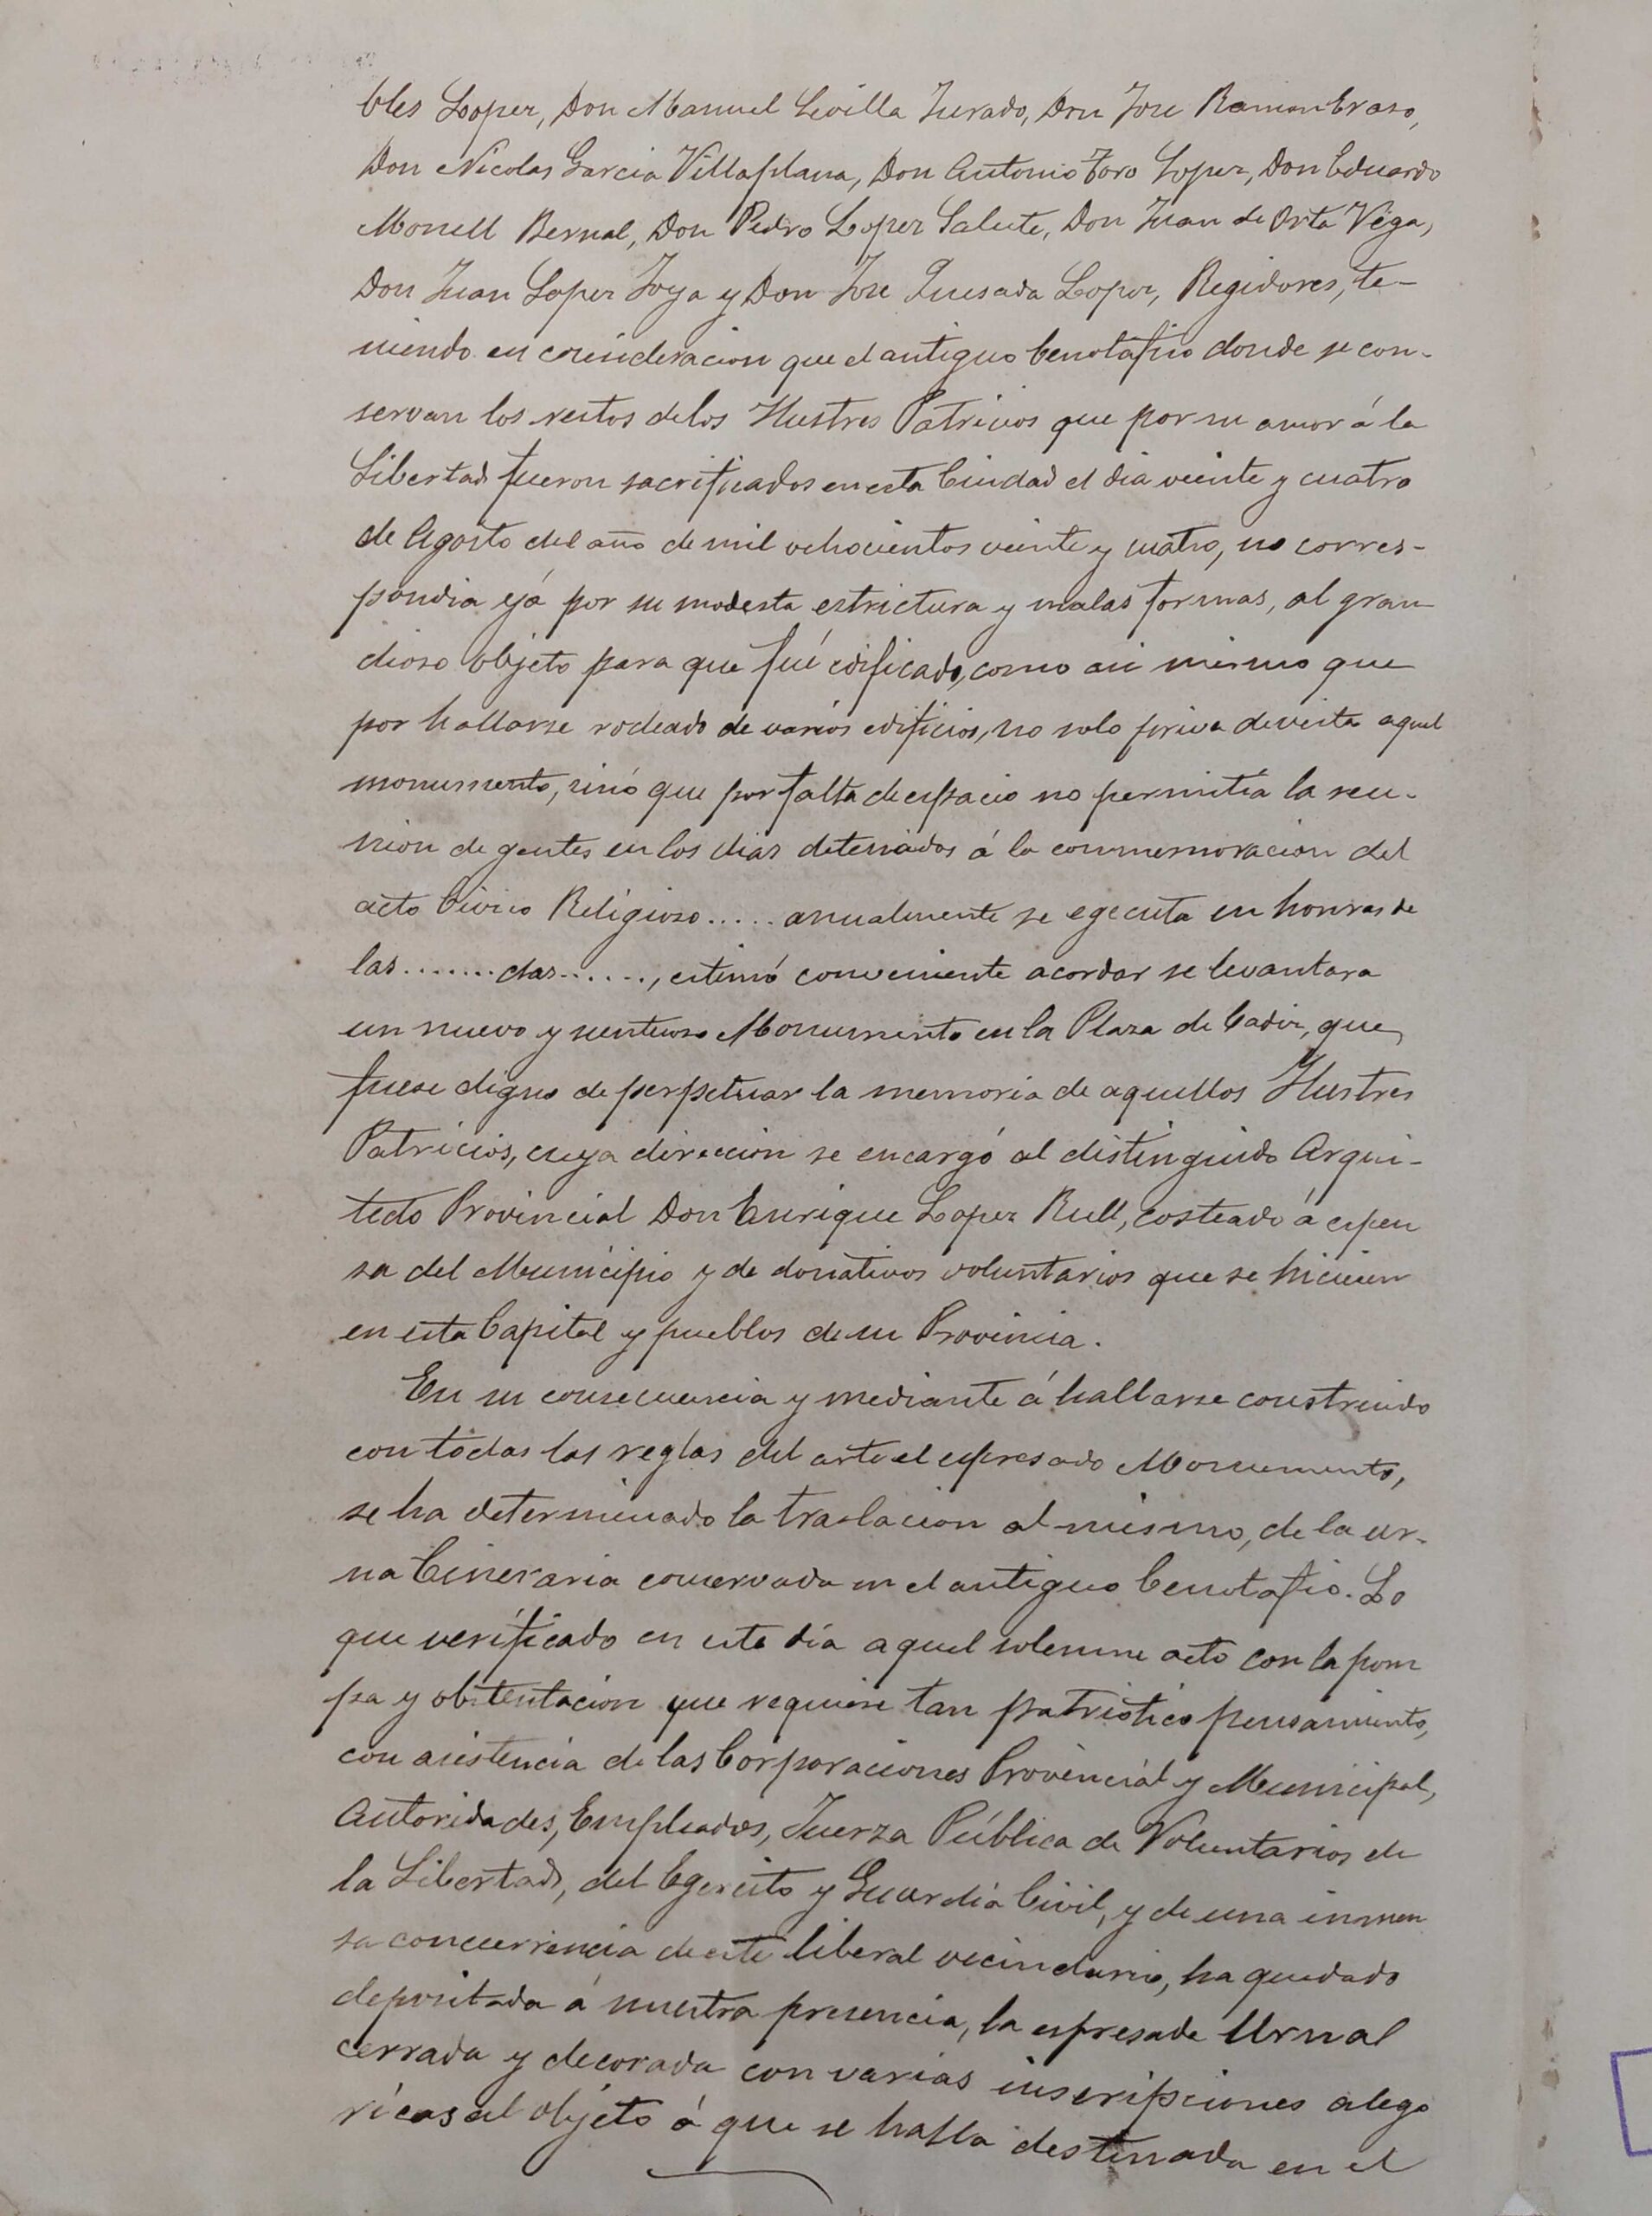 bles Lopez, Don Manuel Sevilla Jurado, Don Jose Ramon Eraso,
Don Nicolas Garcia Villaplana, Don Antonio Toro Lopez, Don Eduardo
Monell Bernal, Don Pedro Lopez Salute, Don Juan de Orta Vega,
Don Juan Lopez Joya y Don Jose Quesada Lopez, Regidores, te-
niendo en consideracion que el antiguo Cenotafio donde se con-
servan los restos de los Ilustres Patricios que por su amor á la
Libertad fueron sacrificados en esta Ciudad el dia veinte y cuatro
de Agosto del año de mil ochocientos veinte y cuatro, no corres-
pondia yá por su modesta estrictura y malas formas, al gran-
dioso objeto para que fué edificado, como asi mismo que
por hallarse rodeado de varios edificios, no solo priva de vista aquel
monumento, sinó que por falta de espacio no permitia la reu-
nion de gentes en los dias deteniados á la conmemoracion del
acto Civico Religioso..... anualmente se egecuta en honras de
las....... das......, estimó conveniente acordar se levantara
un nuevo y suntuoso Monumento en la Plaza de Cadiz, que
fuese digno de perpetuar la memoria de aquellos Ilustres
Patricios, cuya direccion se encargó al distinguido Arqui-
tecto Provincial Don Enrique Lopez Rull, costeado á espen
sa del Municipio y de donativos voluntarios que se hicieron
en esta Capital y pueblos de su Provincia.
En su consecuencia y mediante á hallarse construido
con todas las reglas del arte el espresado Monumento,
se ha determinado la traslacion al mismo, de la ur-
na Cineraria conservada en el antiguo Cenotafio. Lo
que verificado en este dia aquel solemne acto con la pom
pa y obstentacion que requiere tan patriotico pensamiento,
con asistencia de las Corporaciones Provincial y Municipal,
Autoridades, Empleados, Fuerza Pública de Voluntarios de
la Libertad, del Egercito y Guardia Civil, y de una inmen
sa concurrencia de este liberal vecindario, ha quedado
depositada á nuestra presencia, la espresada Urna
cerrada y decorada con varias inscripciones alego
ricas al objeto á que se halla destinada en el